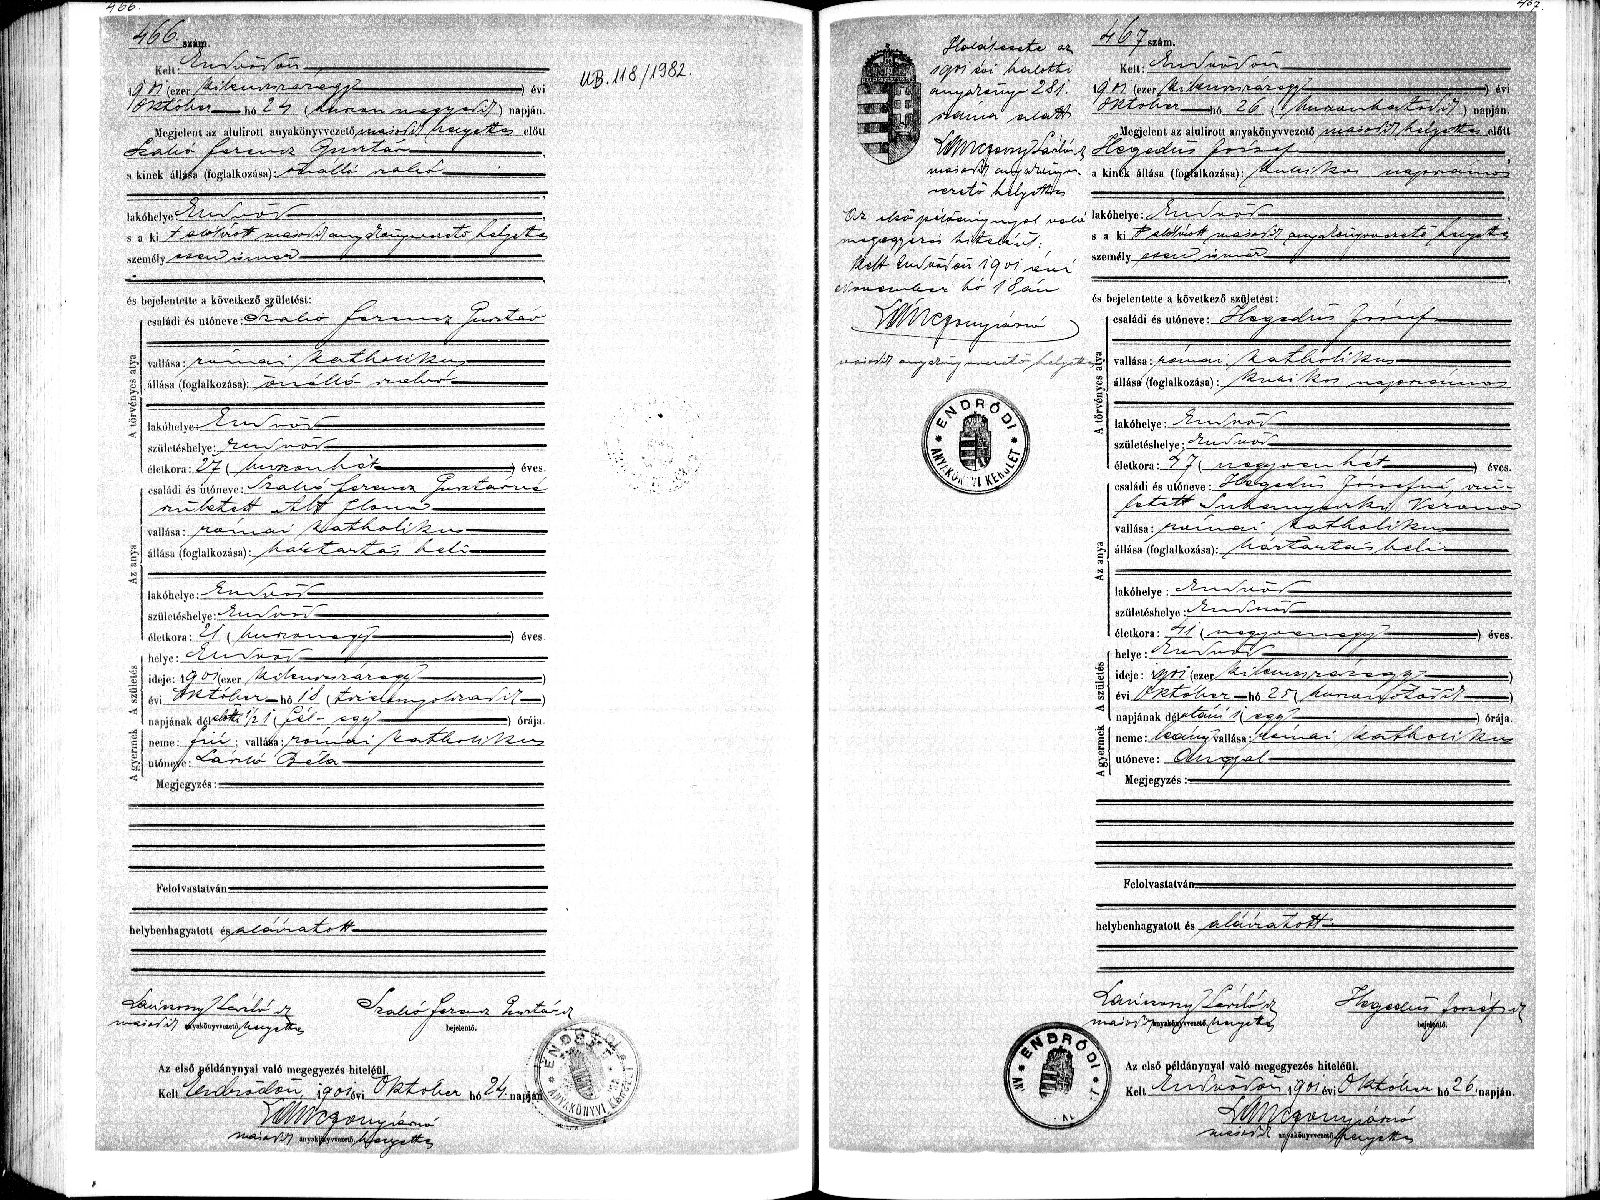 466.
466 szám.
Kelt: Endrődön,
1901 (ezer kilencszázegy) évi
Október hó 24 (huszonnegyedik) napján.
Megjelent az alulirott anyakönyvvezető másodh helyettes előtt
Szabó Ferencz Gusztáv
a kinek állása (foglalkozása): önálló szabó
lakóhelye Endrőd
s a ki t alólirott másodh anyakönyvvezető helyettes
személy esen ismer
és bejelentette a következő születést:
A törvényes atya
családi és utóneve: Szabó Ferencz Gusztáv
vallása: római katholikus
állása (foglalkozása): önálló szabó
lakóhelye: Endrőd
születéshelye: Endrőd
életkora: 27 (huszonhét) éves.
Az anya
családi és utóneve: Szabó Ferencz Gusztávné
született Alt Ilona
vallása: római katholikus
állása (foglalkozása): háztartás beli
lakóhelye: Endrőd
születéshelye: Endrőd
életkora: 21 (huszonegy) éves.
A születés
helye: Endrőd
ideje: 1901 (ezer kilencszázegy)
évi Október hó 18 (tizennyolczadik)
napjának dél előtti ½1 (fél-egy) órája.
A gyermek
neme: fiú; vallása: római katholikus
utóneve: László Béla
Megjegyzés:
Felolvastatván
helybenhagyatott és aláiratott
Szabó Ferencz Gusztáv
másodh anyakönyvvezető helyettes
bejelentő.
Az első példánynyal való megegyezés hiteléül.
Kelt Endrődön, 1901 évi Október hó 24. napján
másodh anyakönyvvezető helyettes
ANYAKÖNYVI
UB. 118/1982.
467.
Halálesete az
1901 évi halotti
anyakönyv 281.
száma alatt
másodh anyakönyv-
vezető helyettes
Az első példánynyal való
megegyezés hiteléül:
Kelt Endrődön 1901 évi
November hó 18án
másodh anyakönyvvezető helyettes
ENDRŐDI
ANYAKÖNYVI KERÜLET
467 szám.
Kelt: Endrődön
1901 (ezer kilencszázegy) évi
Október hó 26 (huszonhatodik) napján.
Megjelent az alulirott anyakönyvvezető másodh helyettes előtt
Hegedűs József
a kinek állása (foglalkozása): kubikos napszámos
lakóhelye: Endrőd
s a ki t alólirott másodh anyakönyvvezető helyettes
személy esen ismer
és bejelentette a következő születést:
A törvényes atya
családi és utóneve: Hegedűs József
vallása: római katholikus
állása (foglalkozása): kubikos napszámos
lakóhelye: Endrőd
születéshelye: Endrőd
életkora: 47 (negyvenhét) éves.
Az anya
családi és utóneve: Hegedűs Józsefné szü-
letett Suhanyecki Verona
vallása: római katholikus
állása (foglalkozása): háztartás beli
lakóhelye: Endrőd
születéshelye: Endrőd
életkora: 41 (negyvenegy) éves.
A születés
helye: Endrőd
ideje: 1901 (ezer kilencszázegy)
évi Október hó 25 (huszonötödik)
napjának dél utáni 1 (egy) órája.
A gyermek
neme: leány vallása: római katholikus
utóneve: Angyal
Megjegyzés:
Felolvastatván
helybenhagyatott és aláiratott
Hegedűs József
másodh anyakönyvvezető helyettes
bejelentő.
ENDRŐDI
Az első példánynyal való megegyezés hiteléül.
Kelt Endrődön 1901 évi Október hó 26. napján.
másodh anyakönyvvezető helyettes